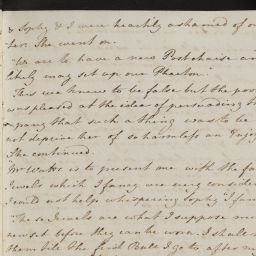 & Sophy & I were heartily ashamed of o
ter. She went on.
"We are to have a new Postchaise an
likely may set up our Phaeton."
This we knew to be false but the poo
was pleased at the idea of persuading th
pany that such a thing was to be
not deprive her of so harmless an Enjoy
She continued.
"Mr Watts is to present me with the fa
Jewels which I fancy are very consider
I could not help whispering Sophy "I fan
"These Jewels are what I suppose mu
new set before they can be worn. I shall n
them till the first Ball I go to after my